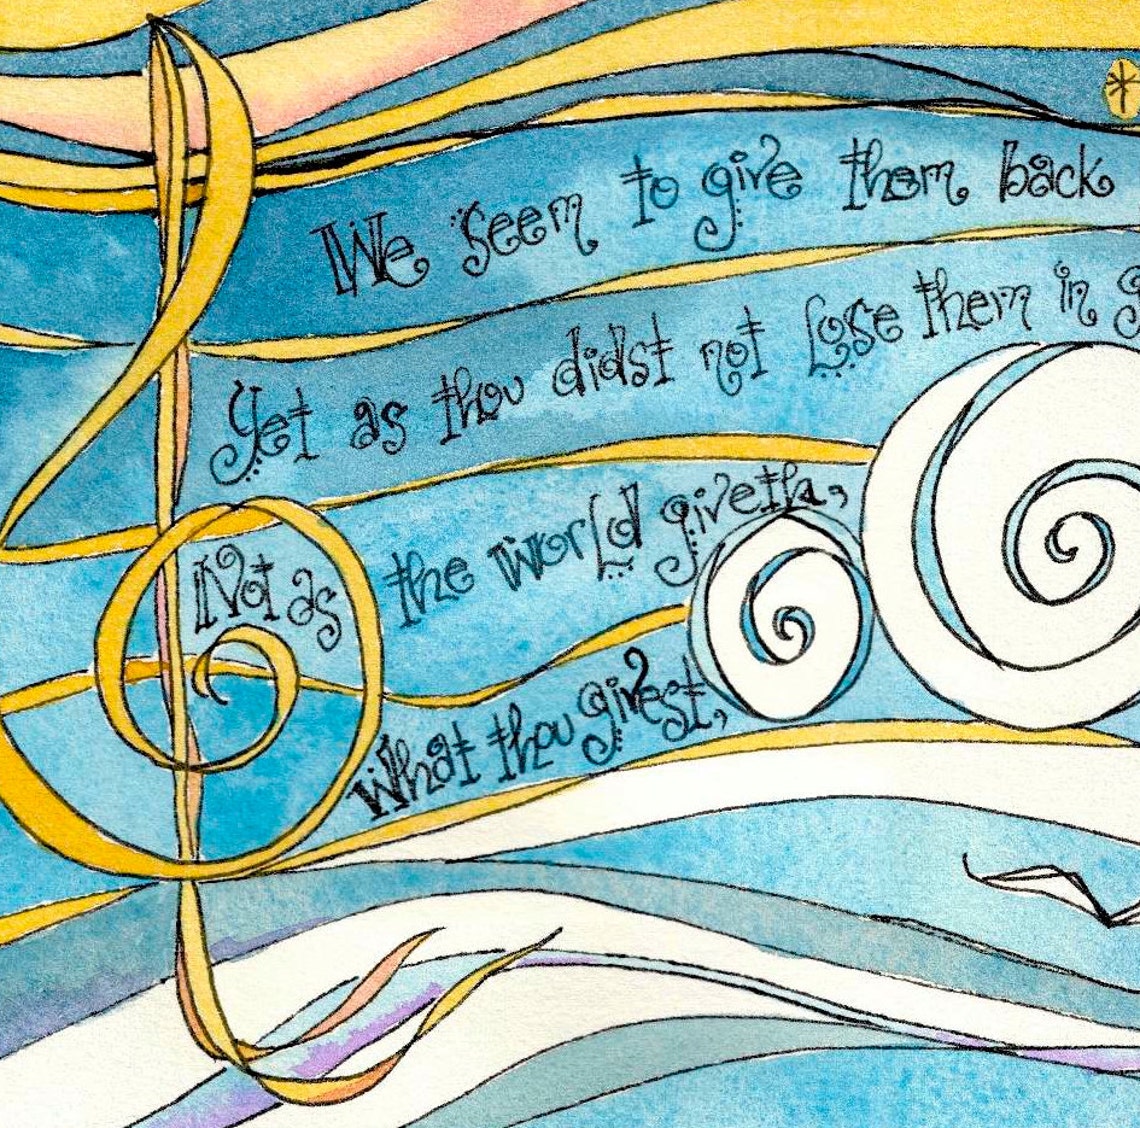 We seem to give them back
Yet as thou didst not lose them in g
Not as the world giveth,
What thou givest,